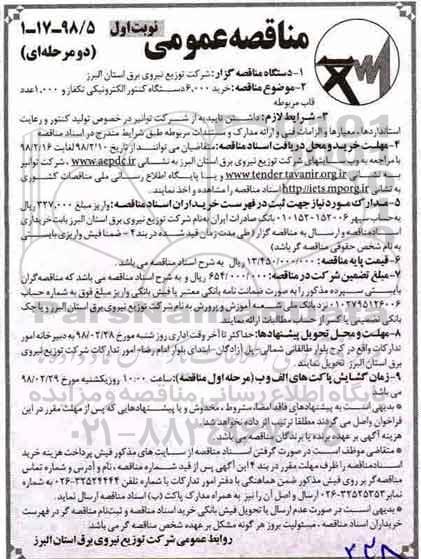 مناقصه عمومی
نوبت اول
۱-۱۷-۹۸/۵
(دو مرحله‌ای)
۱-دستگاه مناقصه گزار: شرکت توزیع نیروی برق استان البرز
۲-موضوع مناقصه: خرید ۶,۰۰۰ دستگاه کنتور الکترونیکی تکفاز و ۱,۰۰۰ عدد
قاب مربوطه
۳- شرایط لازم: داشتن تاییدیه از شرکت توانیر در خصوص تولید کنتور و رعایت
استانداردها، معیارها و الزامات فنی و ارائه مدارک و مستندات مربوطه طبق شرایط مندرج در اسناد مناقصه
۴-مهلت خرید و محل دریافت اسناد مناقصه: متقاضیان می توانند از تاریخ ۹۸/۲/۱۰ لغایت ۹۸/۲/۱۶
با مراجعه به وب سایتهای شرکت توزیع نیروی برق استان البرز به نشانی www.aepdc.ir ، شرکت توانیر
به نشانی www.tender.tavanir.org.ir و یا پایگاه اطلاع رسانی ملی مناقصات کشوری
به نشانی http://iets.mporg.ir اسناد مناقصه را مشاهده و اخذ نمایند.
۵-مدارک مورد نیاز جهت ثبت در فهرست خریداران اسناد مناقصه: واریز مبلغ ۳۲۷,۰۰۰ ریال
به حساب سپهر ۰۱۰۱۵۲۰۱۵۲۰۰۶ بانک صادرات ایران به نام شرکت توزیع نیروی برق استان البرز بابت خریداری
اسناد مناقصه و ارسال به مناقصه گزار (طی مدت زمان قید شده در بند ۴ - ضمنا فیش واریزی بایستی
به نام شخص حقوقی مناقصه گر باشد)
۶- قیمت پایه مناقصه: ۱۳/۴۵۰/۰۰۰/۰۰۰ ریال به شرح اسناد مناقصه می باشد.
۷-مبلغ تضمین شرکت در مناقصه: ۶۵۴/۰۰۰/۰۰۰ ریال و به شرح اسناد مناقصه می باشد که مناقصه گران
بایستی سپرده مذکور را به صورت ضمانت نامه بانکی معتبر یا فیش بانکی واریز مبلغ فوق به شماره حساب
۰۱۰۲۷۹۵۱۲۶۰۰۶ نزد بانک ملی شعبه آموزش و پرورش به نام شرکت توزیع نیروی برق استان البرز و یا چک
بانکی تضمینی یا کسر از حساب مطالبات ارائه نمایند.
۸-مهلت و محل تحویل پیشنهادها: حداکثر تا آخر وقت اداری روز شنبه مورخ ۹۸/۰۲/۲۸ به دبیرخانه امور
تدارکات واقع در کرج بلوار طالقانی شمالی-پل آزادگان-ابتدای بلوار امام رضا- امور تدارکات شرکت توزیع نیروی
برق استان البرز تحویل نمایند.
۹-زمان گشایش پاکت های الف و ب (مرحله اول مناقصه): ساعت ۱۰:۰۰ روز یکشنبه مورخ ۹۸/۰۲/۲۹
می باشد
* بدیهی است به پیشنهادهای فاقد امضا، مشروط، مخدوش و یا پیشنهادهایی که پس از مهلت مقرر در این
فراخوان واصل می گردند مطلقا ترتیب اثر داده نخواهد شد.
هزینه آگهی بر عهده برنده یا برندگان مناقصه می باشد.
* متقاضی موظف است در صورت گرفتن اسناد مناقصه از سایت های مذکور فیش پرداخت هزینه خرید
اسناد مناقصه را ظرف مهلت مقرر در بند ۴ این آگهی پس از قید شماره مناقصه، نام و آدرس و شماره تماس
مناقصه گر بر روی فیش مذکور ضمن هماهنگی با دفتر امور تدارکات با شماره تلفن ۳۳۵۲۴۴۴۲-۰۲۶ به شماره
نمابر ۳۳۵۲۵۳۵۳-۰۲۶ ارسال و اصل آن را نیز به همراه مدارک پاکت (ب) اسناد مناقصه ارسال نماید.
بدیهی است در صورت عدم ارسال یا تحویل فیش بانکی خرید اسناد مناقصه و ثبت نام مناقصه گر در فهرست
خریداران اسناد مناقصه ، مسئولیت بروز هر گونه مشکل بر عهده شخص مناقصه گر می باشد.
روابط عمومی شرکت توزیع نیروی برق استان البرز